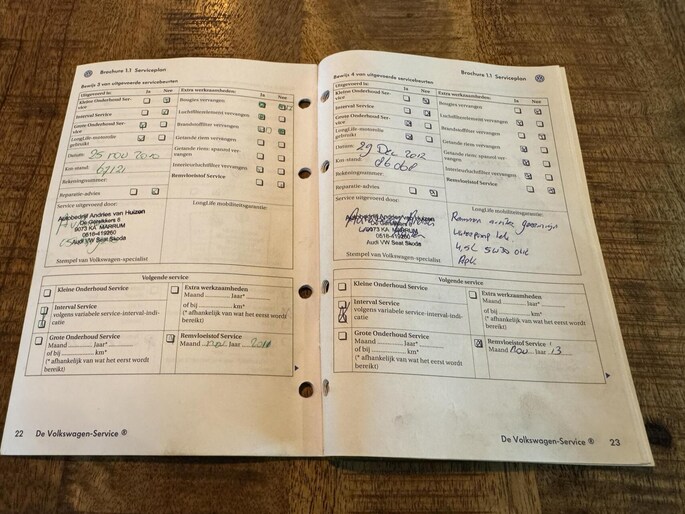 Brochure 1.1 Serviceplan
Bewijs 5 van uitgevoerde servicebeurten
Uitgevoerd is: Ja Nee
Kleine Onderhoud Ser-
vice
Interval Service
Grote Onderhoud Ser-
vice
LongLife-motorolie
gebruikt
Datum: 25 nov 2010
Km-stand:
Rekeningnummer:
Reparatie-advies
Extra werkzaamheden: Ja Nee
Bougies vervangen
Luchtfilterelement vervangen
Brandstoffilter vervangen
Getande riem vervangen
Getande riem: spanrol ver-
vangen
Interieurluchtfilter vervangen
Remvloeistof Service
Service uitgevoerd door:
Autobedrijf Andries van Huizen
De Gernikkers 8
9073 KA MARRUM
0518-419260
Audi VW Seat Skoda
Stempel van Volkswagen-specialist
LongLife mobiliteitsgarantie:
Volgende service
Kleine Onderhoud Service
Interval Service
volgens variabele service-interval-indi-
catie
Grote Onderhoud Service
Maand ........ Jaar*
of bij ........ km*
(* afhankelijk van wat het eerst wordt
bereikt)
Extra werkzaamheden
Maand ........ Jaar*
of bij ........ km*
(* afhankelijk van wat het eerst wordt
bereikt)
Remvloeistof Service
Maand nov Jaar
22 De Volkswagen-Service ®
Brochure 1.1 Serviceplan
Bewijs 4 van uitgevoerde servicebeurten
Uitgevoerd is: Ja Nee
Kleine Onderhoud Ser-
vice
Interval Service
Grote Onderhoud Ser-
vice
LongLife-motorolie
gebruikt
Datum: 29 Dec 2012
Km-stand: 86068
Rekeningnummer:
Reparatie-advies
Extra werkzaamheden: Ja Nee
Bougies vervangen
Luchtfilterelement vervangen
Brandstoffilter vervangen
Getande riem vervangen
Getande riem: spanrol ver-
vangen
Interieurluchtfilter vervangen
Remvloeistof Service
Service uitgevoerd door:
9073 KA MARRUM
0518-419260
Audi VW Seat Skoda
Stempel van Volkswagen-specialist
LongLife mobiliteitsgarantie:
Remmen
waterpomp
4,5L 5w30 olie
Apk
Volgende service
Kleine Onderhoud Service
Interval Service
volgens variabele service-interval-indi-
catie
Grote Onderhoud Service
Maand ........ Jaar*
of bij ........ km*
(* afhankelijk van wat het eerst wordt
bereikt)
Extra werkzaamheden
Maand ........ Jaar*
of bij ........ km*
(* afhankelijk van wat het eerst wordt
bereikt)
Remvloeistof Service
Maand nov Jaar 13
De Volkswagen-Service ® 23